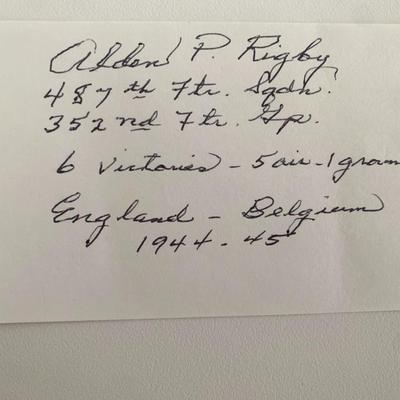 Alden P. Rigby
487th Ftr. Sqdn.
352nd Ftr. Gp.
6 victories - 5 air - 1 groun
England - Belgium
1944-45